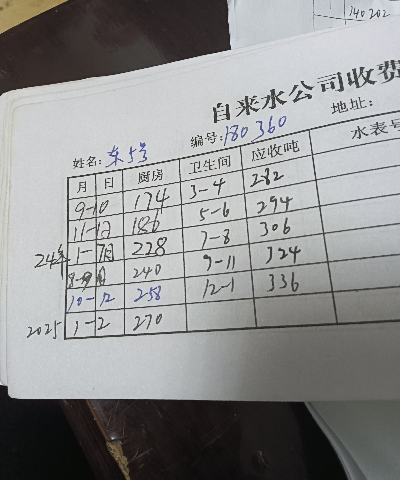 140202
自来水公司收费
姓名: 东5号 编号: 180360 地址:
月 日 厨房 卫生间 应收吨 水表号
9-10 174 3-4 282
11-12 186 5-6 294
24年 1-7月 228 7-8 306
8-9月 240 9-11 324
10-12 258 12-1 336
2025 1-2 270